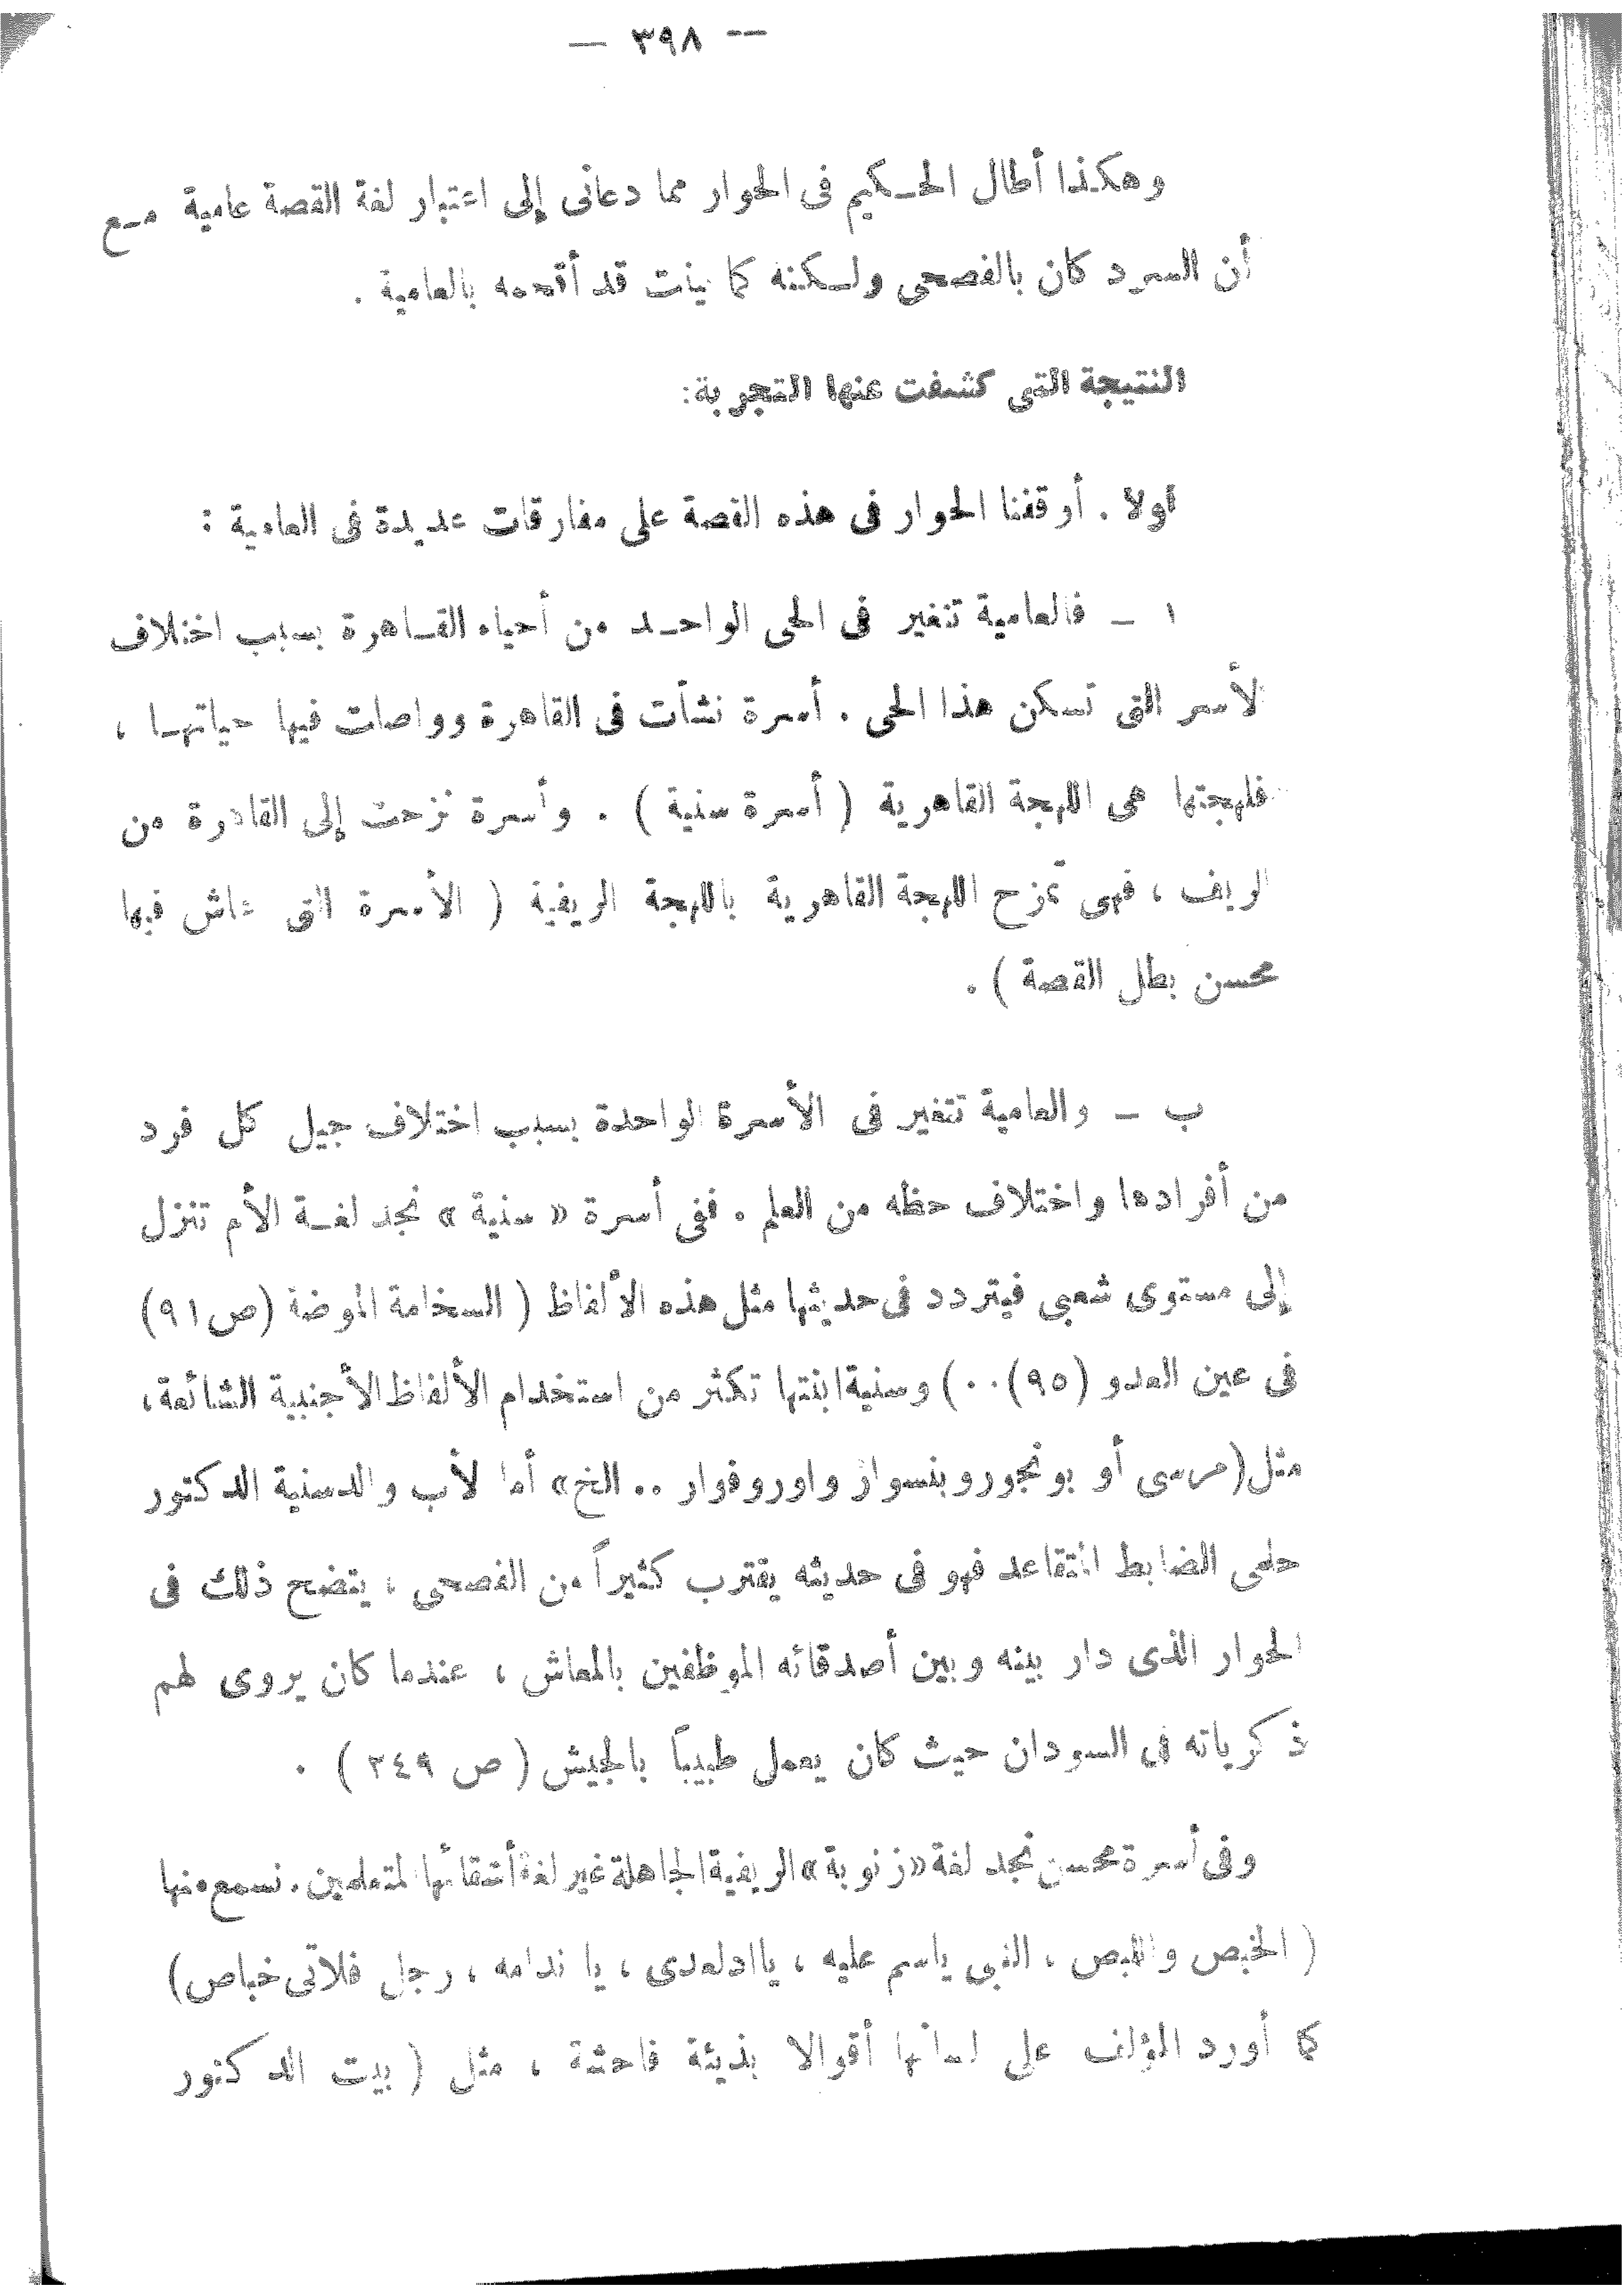 — ٣٩٨ —
وهكذا أطال الحكيم فى الحوار مما دعانى إلى اعتبار لغة القصة عامية مع
أن السرد كان بالفصحى ولكنه كما بينت قد أقحمه بالعامية .
النتيجة التى كشفت عنها التجربة:
أولا . أوقفنا الحوار فى هذه القصة على مفارقات عديدة فى العامية :
١ – فالعامية تتغير فى الحى الواحد من أحياء القاهرة بسبب اختلاف
الأسر التى تسكن هذا الحى . أسرة نشأت فى القاهرة وواصلت فيها حياتها ،
فلهجتها هى اللهجة القاهرية ( أسرة سنية ) . وأسرة نزحت إلى القاهرة من
الريف ، فهى تمزح اللهجة القاهرية باللهجة الريفية ( الأسرة التى عاش فيها
محسن بطل القصة ) .
ب – والعامية تتغير فى الأسرة الواحدة بسبب اختلاف جيل كل فرد
من أفرادها واختلاف حظه من العلم . ففى أسرة « سنية » نجد لغة الأم تنزل
إلى مستوى شعبى فيتردد فى حديثها مثل هذه الألفاظ ( السخامة الموضة (ص٩١)
فى عين العدو (٩٥)٠٠) وسنية ابنتها تكثر من استخدام الألفاظ الأجنبية الشائعة،
مثل(مرسى أو بونجورو بنسوار واوروفوار .. الخ» أما لأب والدسنية الدكتور
حلمى الضابط المتقاعد فهو فى حديثه يقترب كثيراً من الفصحى ، يتضح ذلك فى
الحوار الذى دار بينه وبين أصدقائه الموظفين بالمعاش ، عندما كان يروى لهم
ذكرياته فى السودان حيث كان يعمل طبيباً بالجيش ( ص ٢٤٩ ) .
وفى أسرة محسن نجد لغة «زنوبة» الريفية الجاهلة غير لغة أشقائها المتعلمين. نسمع منها
( الخبص واللبص ، النبى ياسم عليه ، ياادلعدى ، يا ندامه ، رجل فلاتى خباص)
كما أورد المؤلف على لسانها أقوالا بذيئة فاحشة ، مثل ( بيت الدكتور